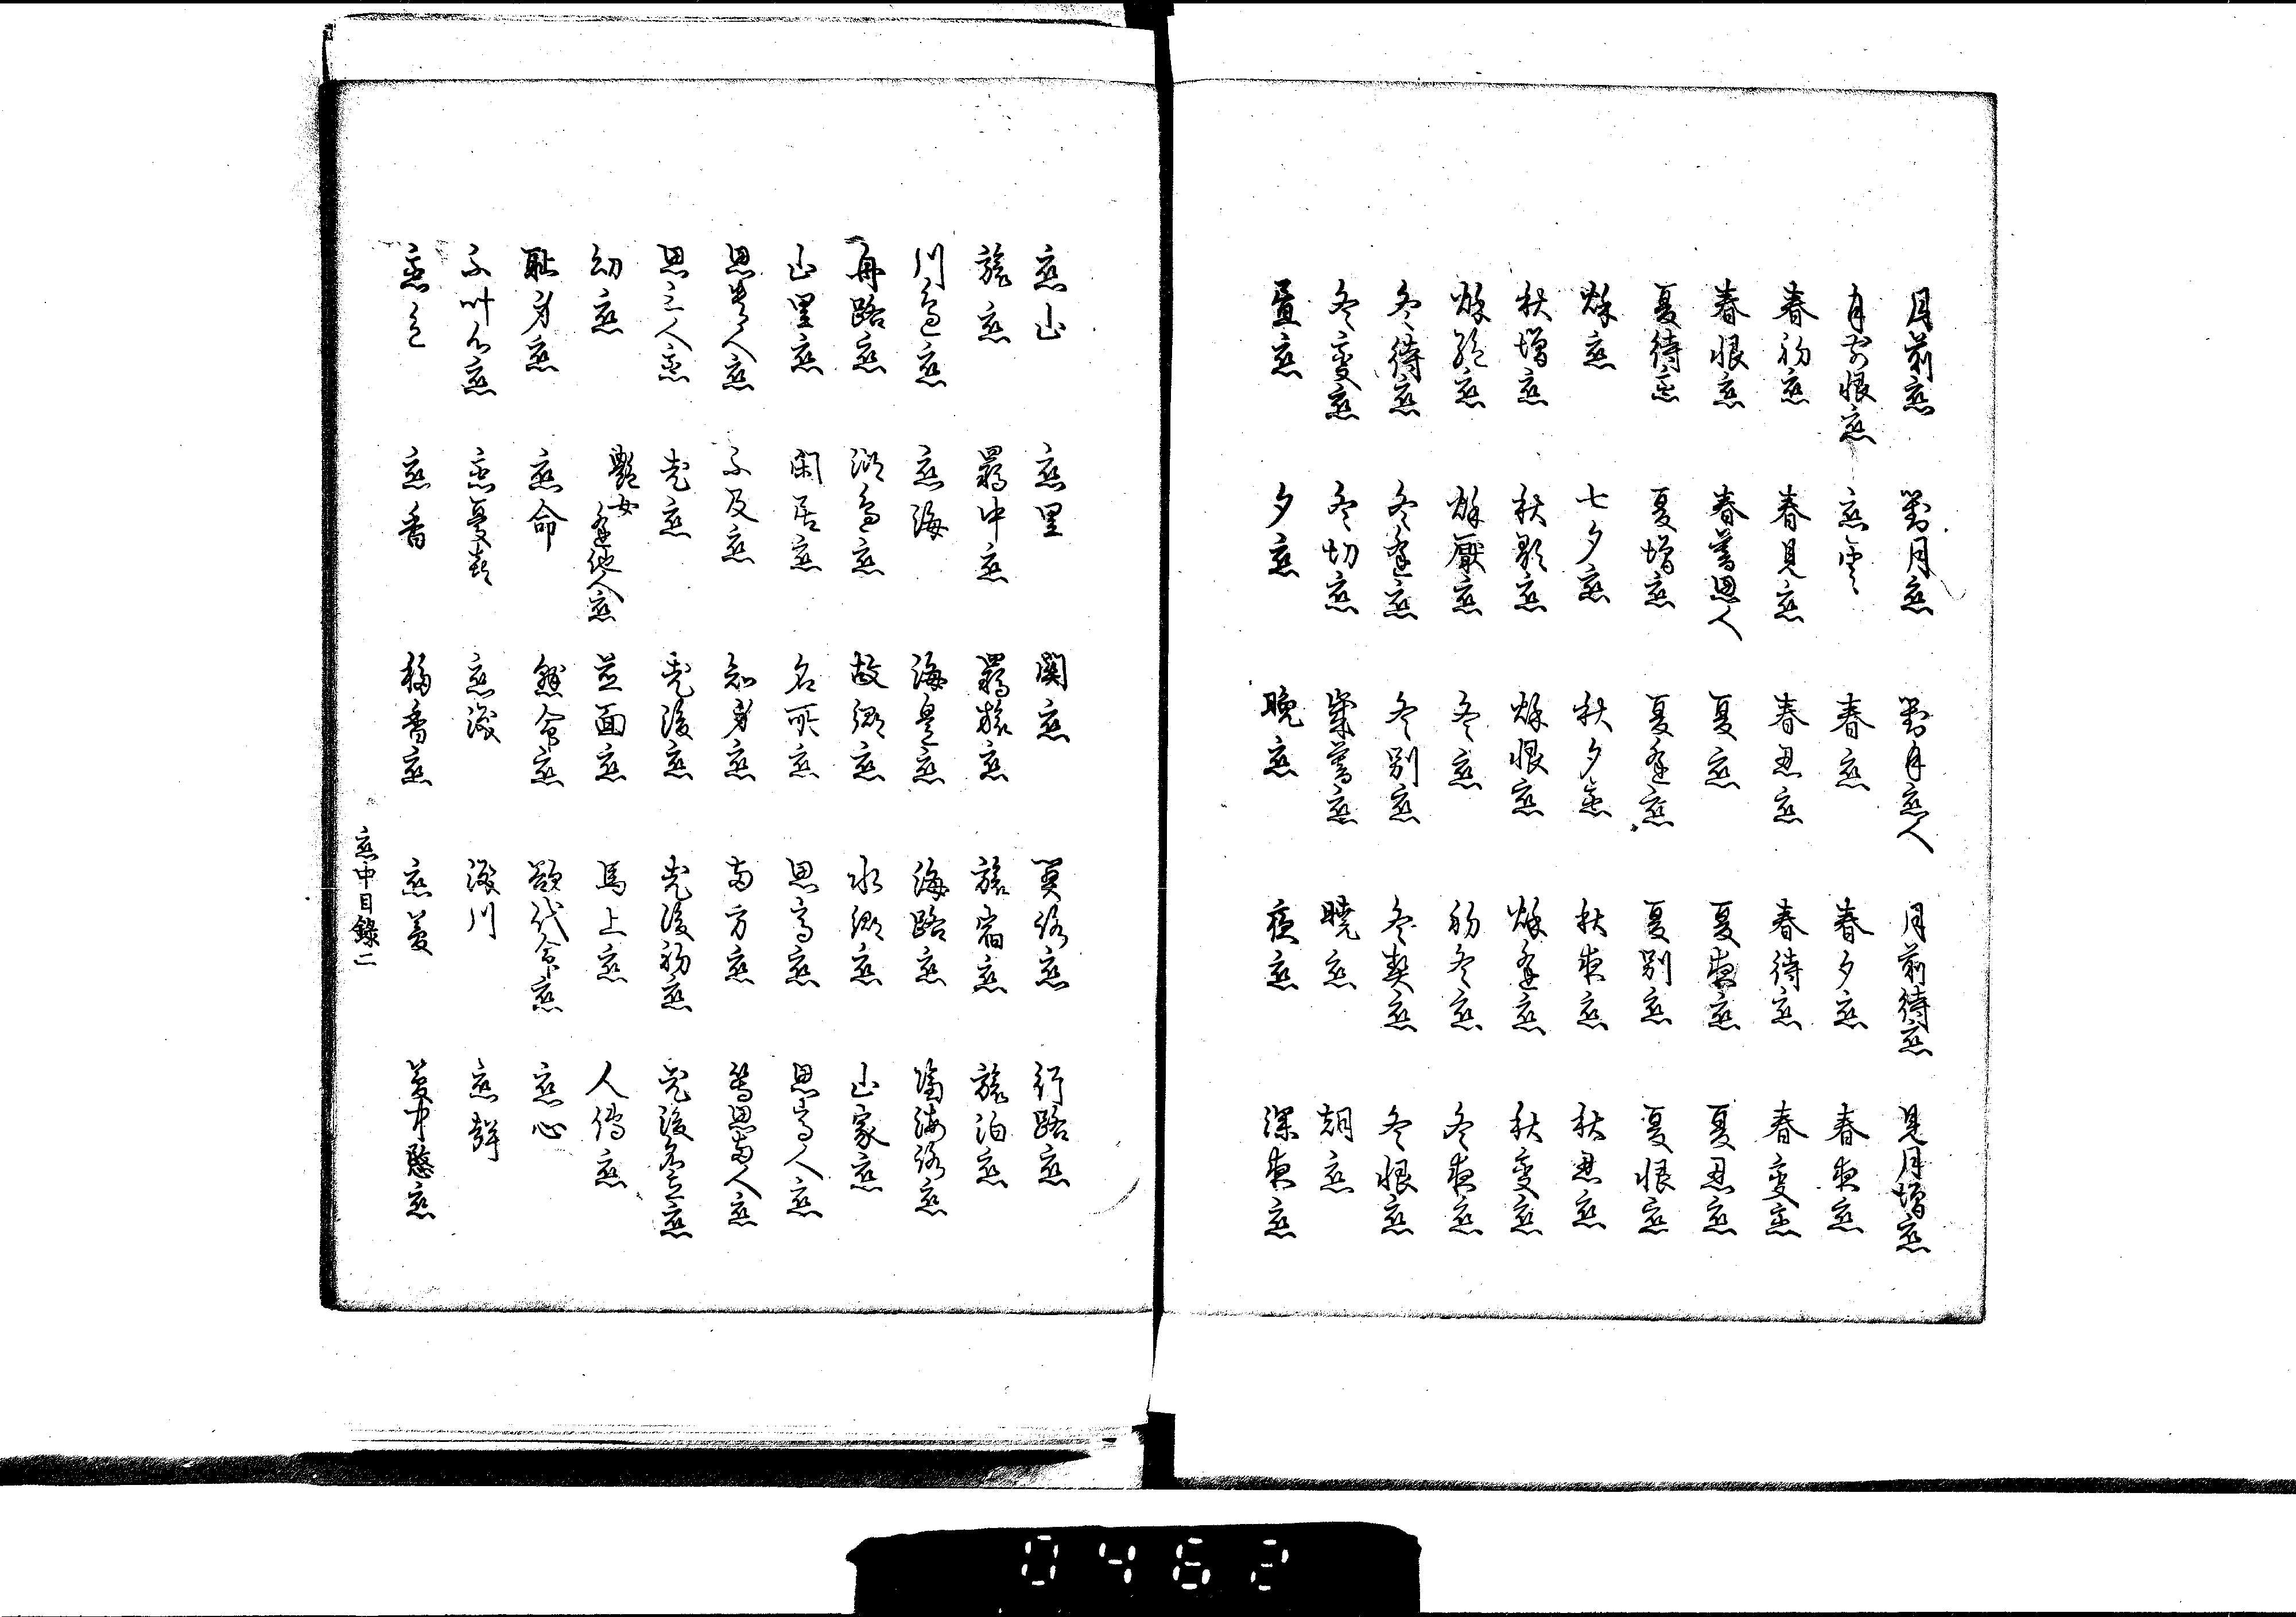 月前恋 對月恋 對月恋人 月前待恋 見月増恋
月前恨恋 恋雲 春恋 春夕恋 春夜恋
春初恋 春見恋 春忍恋 春待恋 春変恋
春恨恋 春暮思人 夏恋 夏夜恋 夏忍恋
夏待恋 夏増恋 夏逢恋 夏別恋 夏恨恋
秌恋 七夕恋 秋夕恋 秋夜恋 秋忍恋
秋増恋 秋顕恋 秌恨恋 秌逢恋 秋変恋
秌絶恋 秌厭恋 冬恋 初冬恋 冬夜恋
冬待恋 冬逢恋 冬別恋 冬契恋 冬恨恋
冬変恋 冬切恋 歳暮恋 暁恋 朝恋
昼恋 夕恋 晩恋 夜恋 深夜恋
恋山 恋里 関恋 関路恋 行路恋
旅恋 羇中恋 羇旅恋 旅宿恋 旅泊恋
川邉恋 恋海 海邊恋 海路恋 隔海路恋
舟路恋 湖邉恋 故郷恋 水郷恋 山家恋
山里恋 閑居恋 名所恋 思高恋 思高人恋
思貴人恋 不及恋 知身恋 両方恋 等思両人恋
思二人恋 老恋 老後恋 老後初恋 老後忍恋
幼恋 艶女逢他人恋 並面恋 馬上恋 人傳恋
耻身恋 恋命 懸命恋 欲代命恋 恋心
不叶心恋 恋憂喜 恋涙 涙川 恋聲
恋色 恋香 移香恋 恋夢 夢中契恋
恋中目錄二
0462